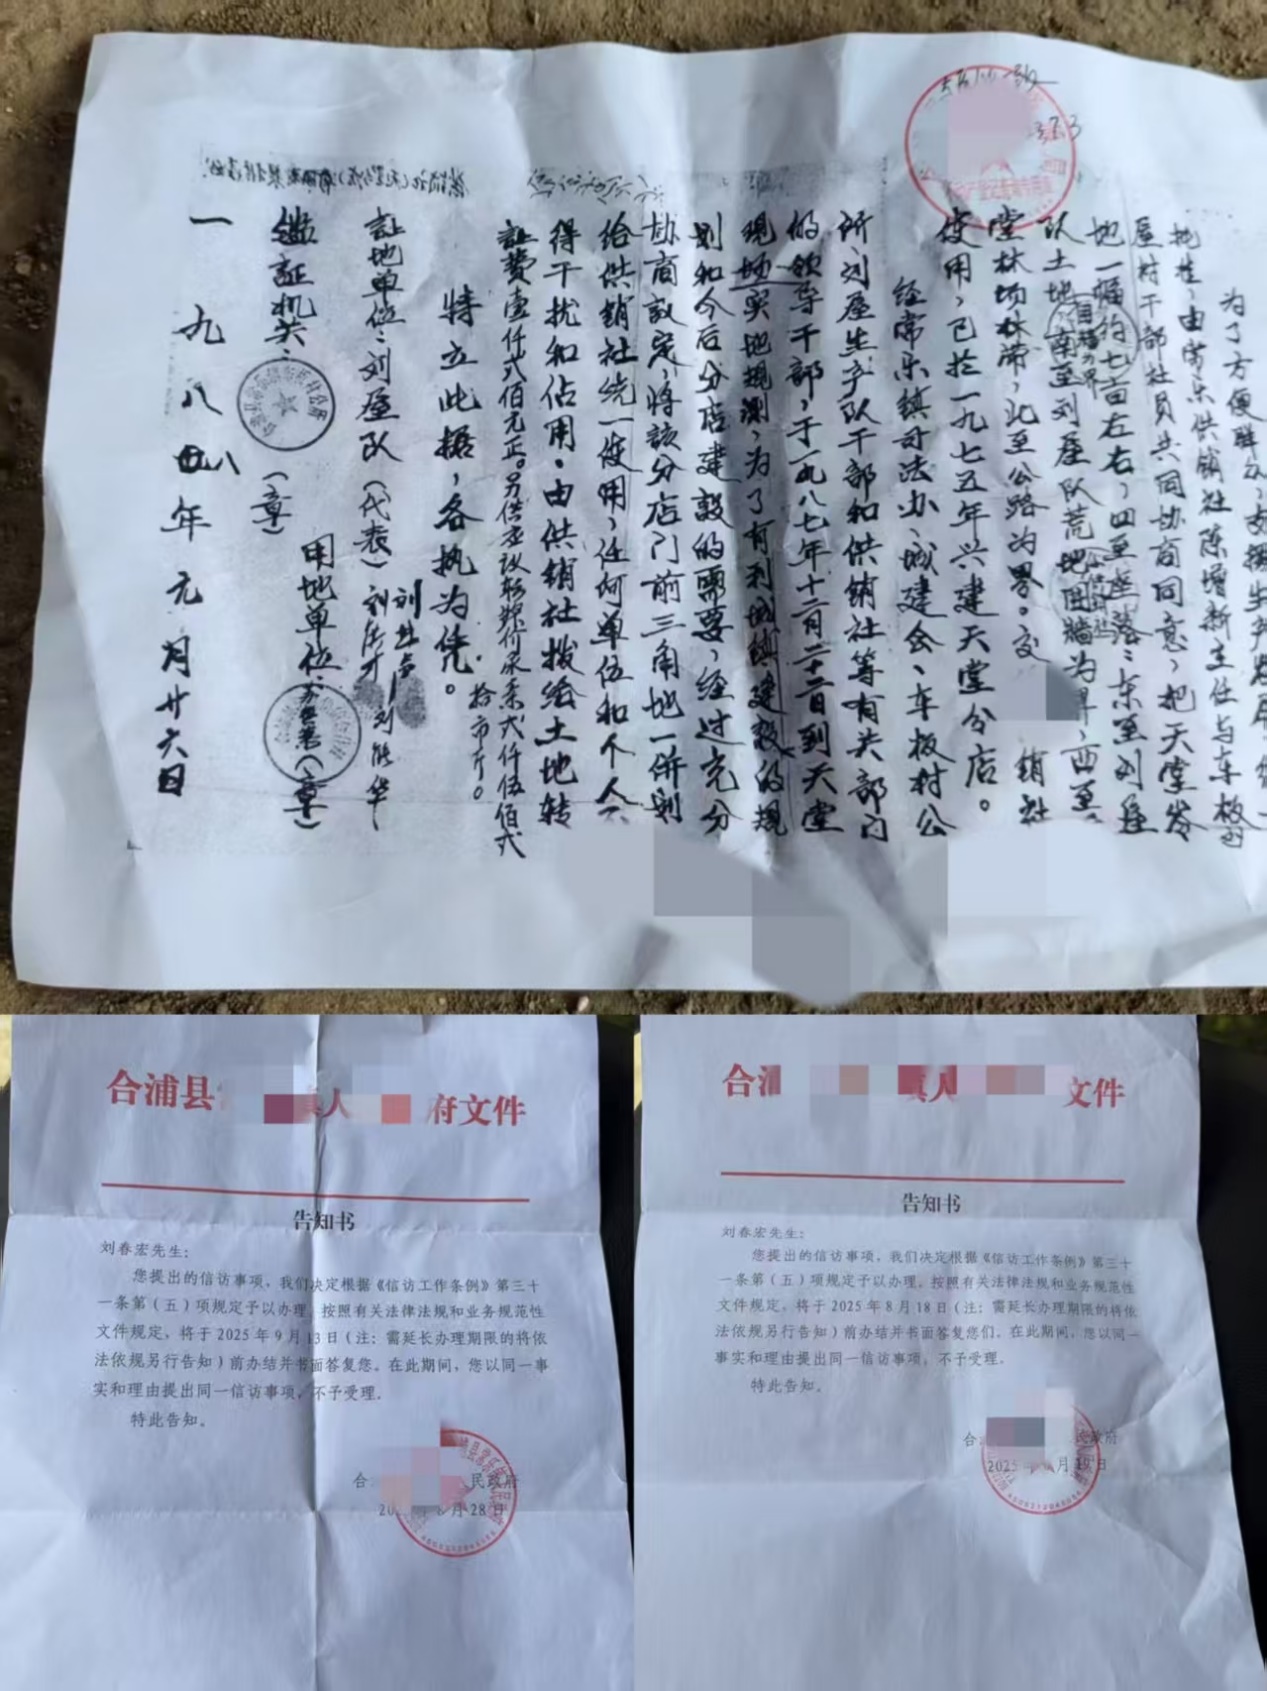 为了方便群众，支援生产发展，
地一幅约七亩左右，四至座落：东至刘屋
队土地，南至刘屋队荒地围墙为界，西至
堂林场林带，北至公路为界。交
销社
使用，已于一九七五年兴建天堂分店。
经常乐镇司法办、城建会、车板村公
所、刘屋生产队干部和供销社等有关部门
的领导干部，于一九八七年十二月二十二日到天堂
现场实地规测，为了有利城镇建设的规
划和今后分店建设的需要，经过充分
协商议定，将该分店门前三角地一併划
给供销社统一使用，任何单位和个人不
得干扰和佔用。由供销社拨给土地转
让费壹仟弍佰元正。另供应议转粮价尿素弍仟伍佰弍
拾市斤。
特立此据，各执为凭。
让地单位：刘屋队（代表）
刘能华
用地单位：
（章）
鉴证机关：
（章）
一九八八年元月廿六日
合浦县
府文件
告知书
刘春宏先生：
您提出的信访事项，我们决定根据《信访工作条例》第三十
一条第（五）项规定予以办理，按照有关法律法规和业务规范性
文件规定，将于2025年9月13日（注：需延长办理期限的将依
法依规另行告知）前办结并书面答复您。在此期间，您以同一事
实和理由提出同一信访事项，不予受理。
特此告知。
合
民政府
月28日
合
文件
告知书
刘春宏先生：
您提出的信访事项，我们决定根据《信访工作条例》第三十
一条第（五）项规定予以办理，按照有关法律法规和业务规范性
文件规定，将于2025年8月18日（注：需延长办理期限的将依
法依规另行告知）前办结并书面答复您们。在此期间，您以同一
事实和理由提出同一信访事项，不予受理。
特此告知。
合
民政府
2025年
月19日